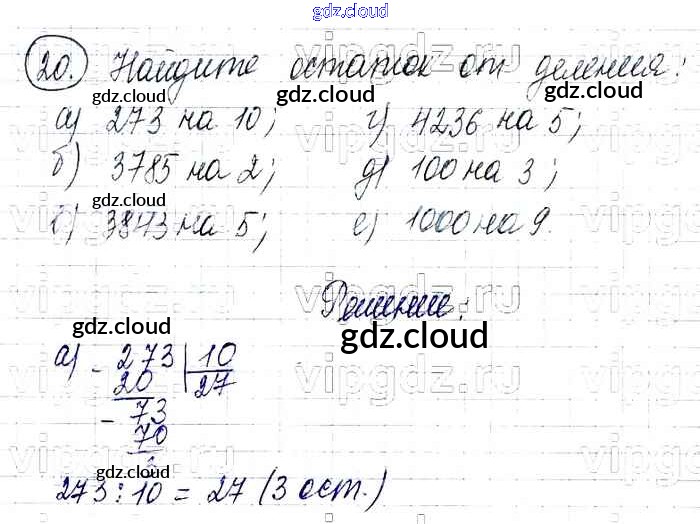 gdz.cloud
20. Найдите остаток от деления:
gdz.cloud gdz.cloud gdz.cloud
а) 273 на 10; г) 4236 на 5;
б) 3785 на 2; д) 100 на 3;
gdz.cloud
в) 3843 на 5; е) 1000 на 9.
vipgdz.ru
Решение:
gdz.cloud gdz.cloud
а) - 273 | 10
20 27
vipgdz.ru
- 73
70
gdz.cloud
3
273 : 10 = 27 (3 ост.)
gdz.cloud